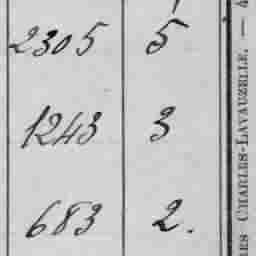 2305 5
1243 3
683 2.
ES CHARLES-LAVAUZELLE. — 4